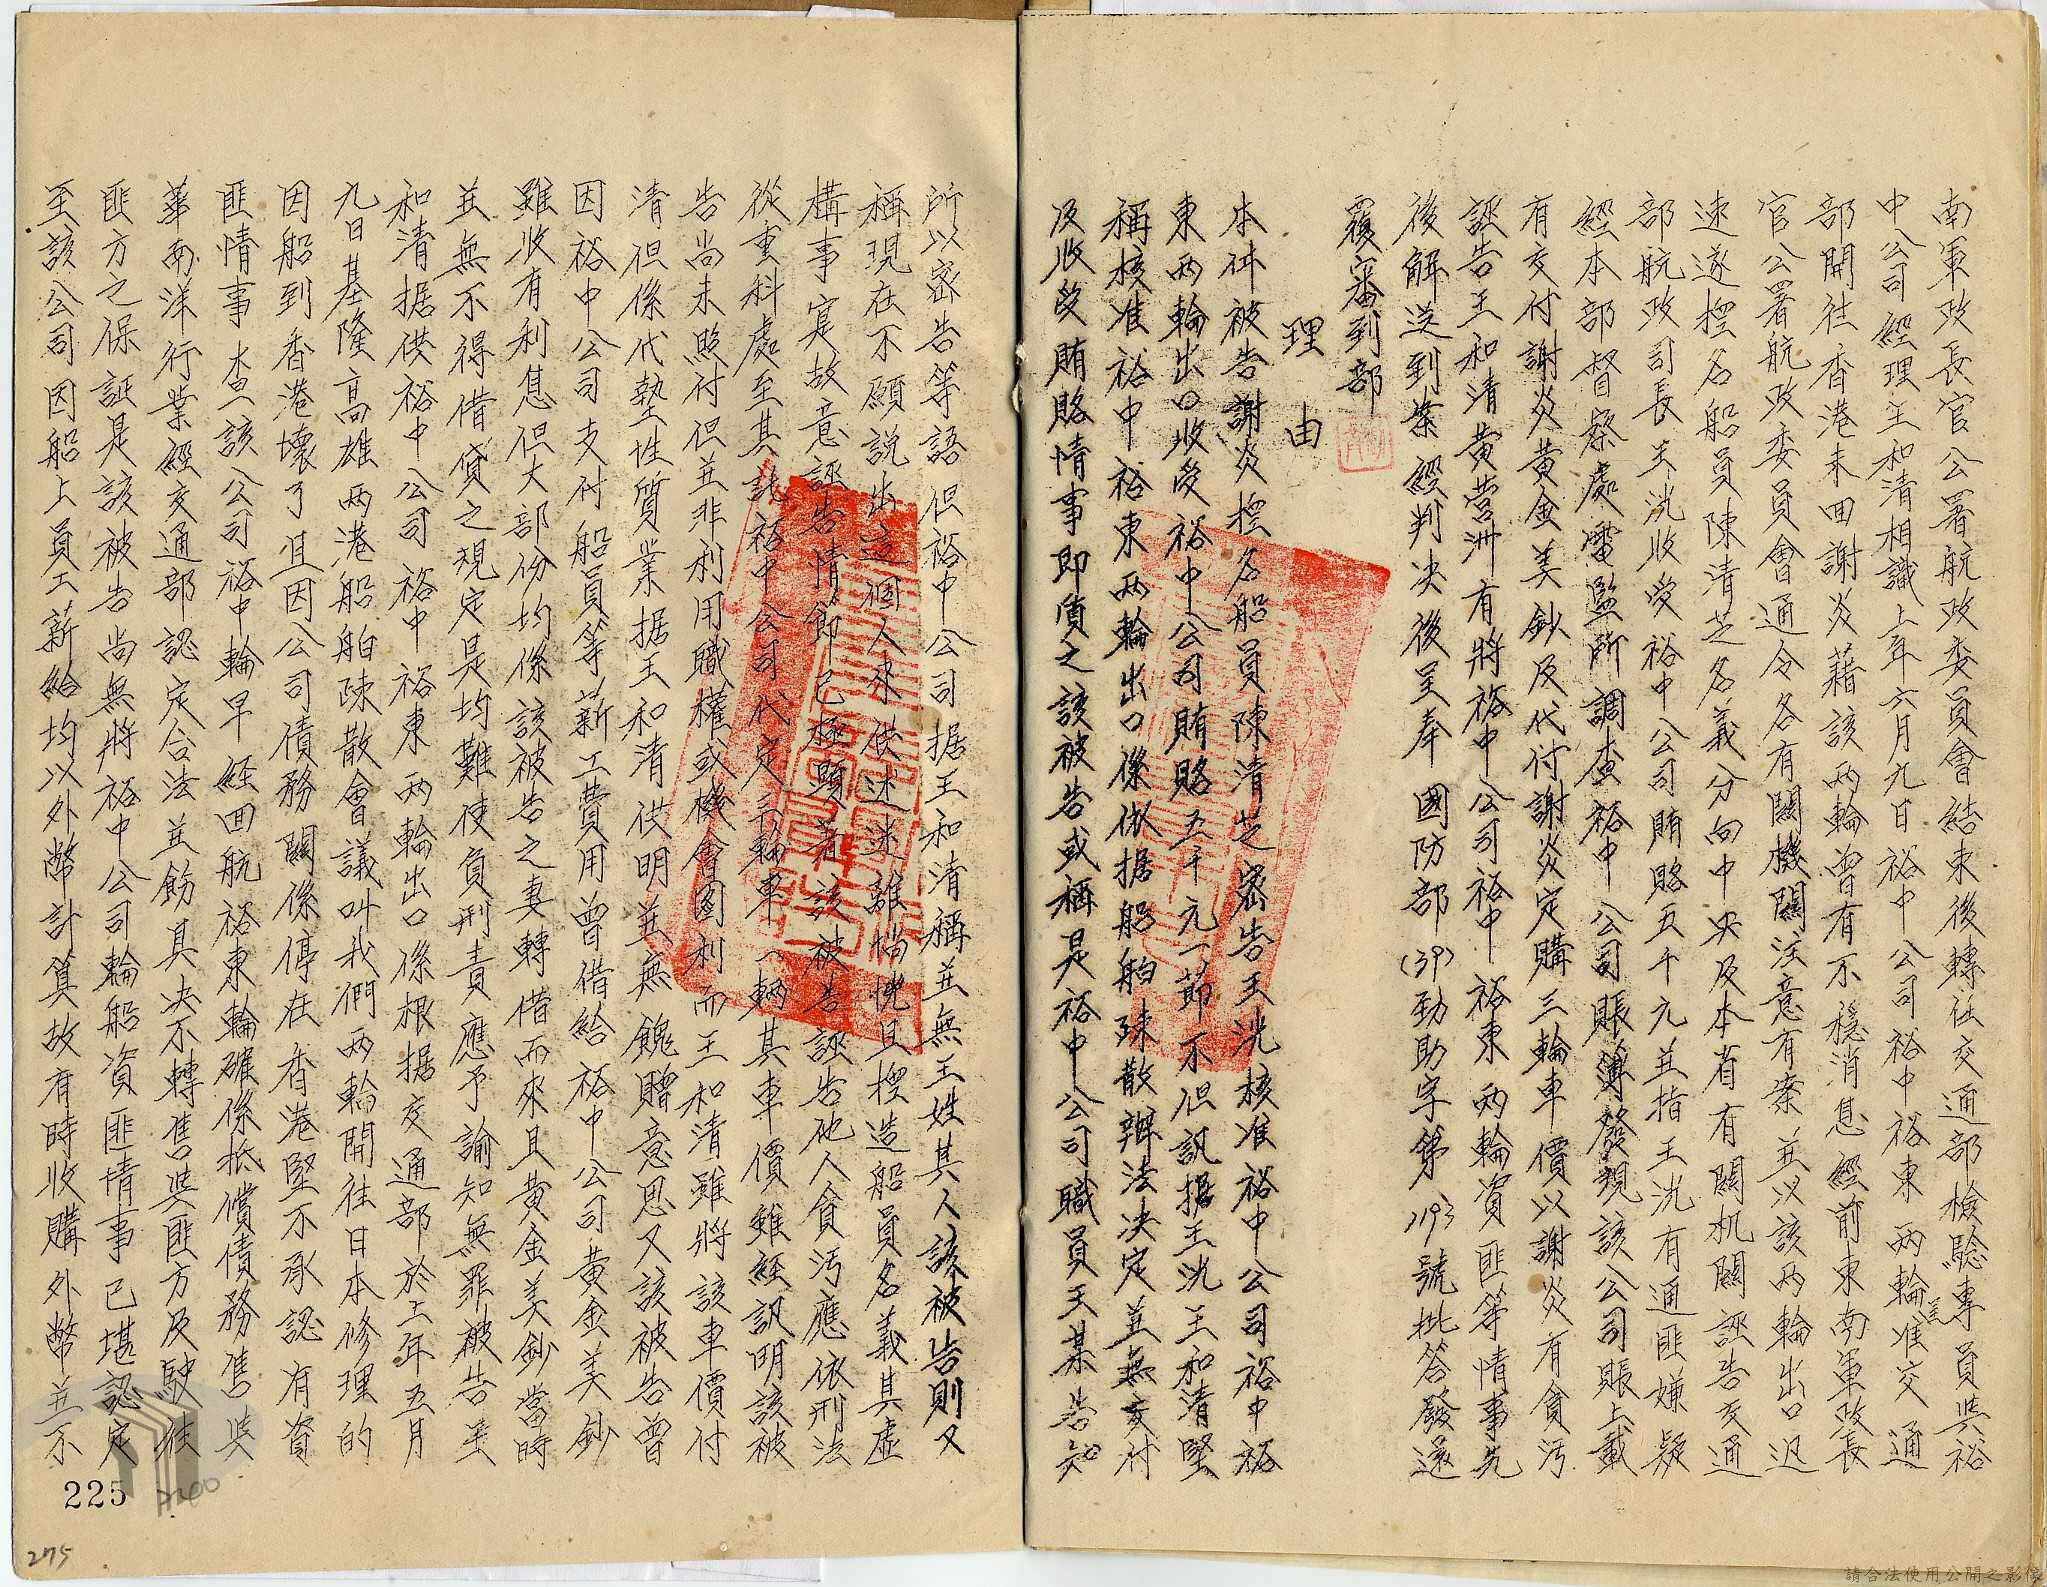 南軍政長官公署航政委員會結束後轉任交通部檢驗專員與裕
中公司經理王和清相識上年六月九日裕中公司裕中裕東兩輪准交通
部開往香港未回謝炎藉該兩輪曾有不穩消息經前東南軍政長
官公署航政委員會通令各有關機關注意有案並以該兩輪出口迅
速遂捏名船員陳清芝名義分向中央及本省有關机關誣告交通
部航政司長王洸收受裕中公司賄賂五千元並指王洸有通匪嫌疑
經本部督察處雷監所調查裕中公司賬簿發現該公司賬上載
有交付謝炎黃金美鈔及代付謝炎定購三輪車價以謝炎有貪污
誣告王和清黃营洲有將裕中公司裕中裕東兩輪資匪等情事先
後解送到案經判決後呈奉國防部(39)勁助字第1193號批答發還
覆審到部
理由
本件被告謝炎捏名船員陳清芝密告王洸核准裕中公司裕中裕
東兩輪出口收受裕中公司賄賂五千元一節不但訊据王洸王和清堅
稱核准裕中裕東兩輪出口係依据船舶疎散辦法決定並無交付
及收受賄賂情事即質之該被告或稱是裕中公司職員王某告知
所以密告等語但裕中公司据王和清稱並無王姓其人該被告則又
稱現在不願說出這個人來供述迷離惝恍且捏造船員名義其虛
構事寔故意誣告情節即已極顯著該被告誣告他人貪污應依刑法
從重科處至其託裕中公司代定三輪車一輛其車價雖經訊明該被
告尚未照付但並非利用職權或機會圖利而王和清雖將該車價付
清但係代墊性質業据王和清供明並無餽贈意思又該被告曾
因裕中公司支付船員等薪工費用曾借給裕中公司黃金美鈔
雖收有利息但大部份均係該被告之妻轉借而來且黃金美鈔當時
並無不得借貸之規定是均難使負刑責應予諭知無罪被告王
和清据供裕中公司裕中裕東兩輪出口係根据交通部於上年五月
九日基隆高雄兩港船舶疎散會議叫我們兩輪開往日本修理的
因船到香港壞了且因公司債務關係停在香港堅不承認有資
匪情事查該公司裕中輪早經回航裕東輪確係抵償債務售與
華南洋行業經交通部認定合法並飭具決不轉售與匪方及駛往
匪方之保証是該被告尚無將裕中公司輪船資匪情事已堪認定
至該公司因船上員工薪給均以外幣計算故有時收購外幣並不
225
A200
275
請合法使用公開之影像